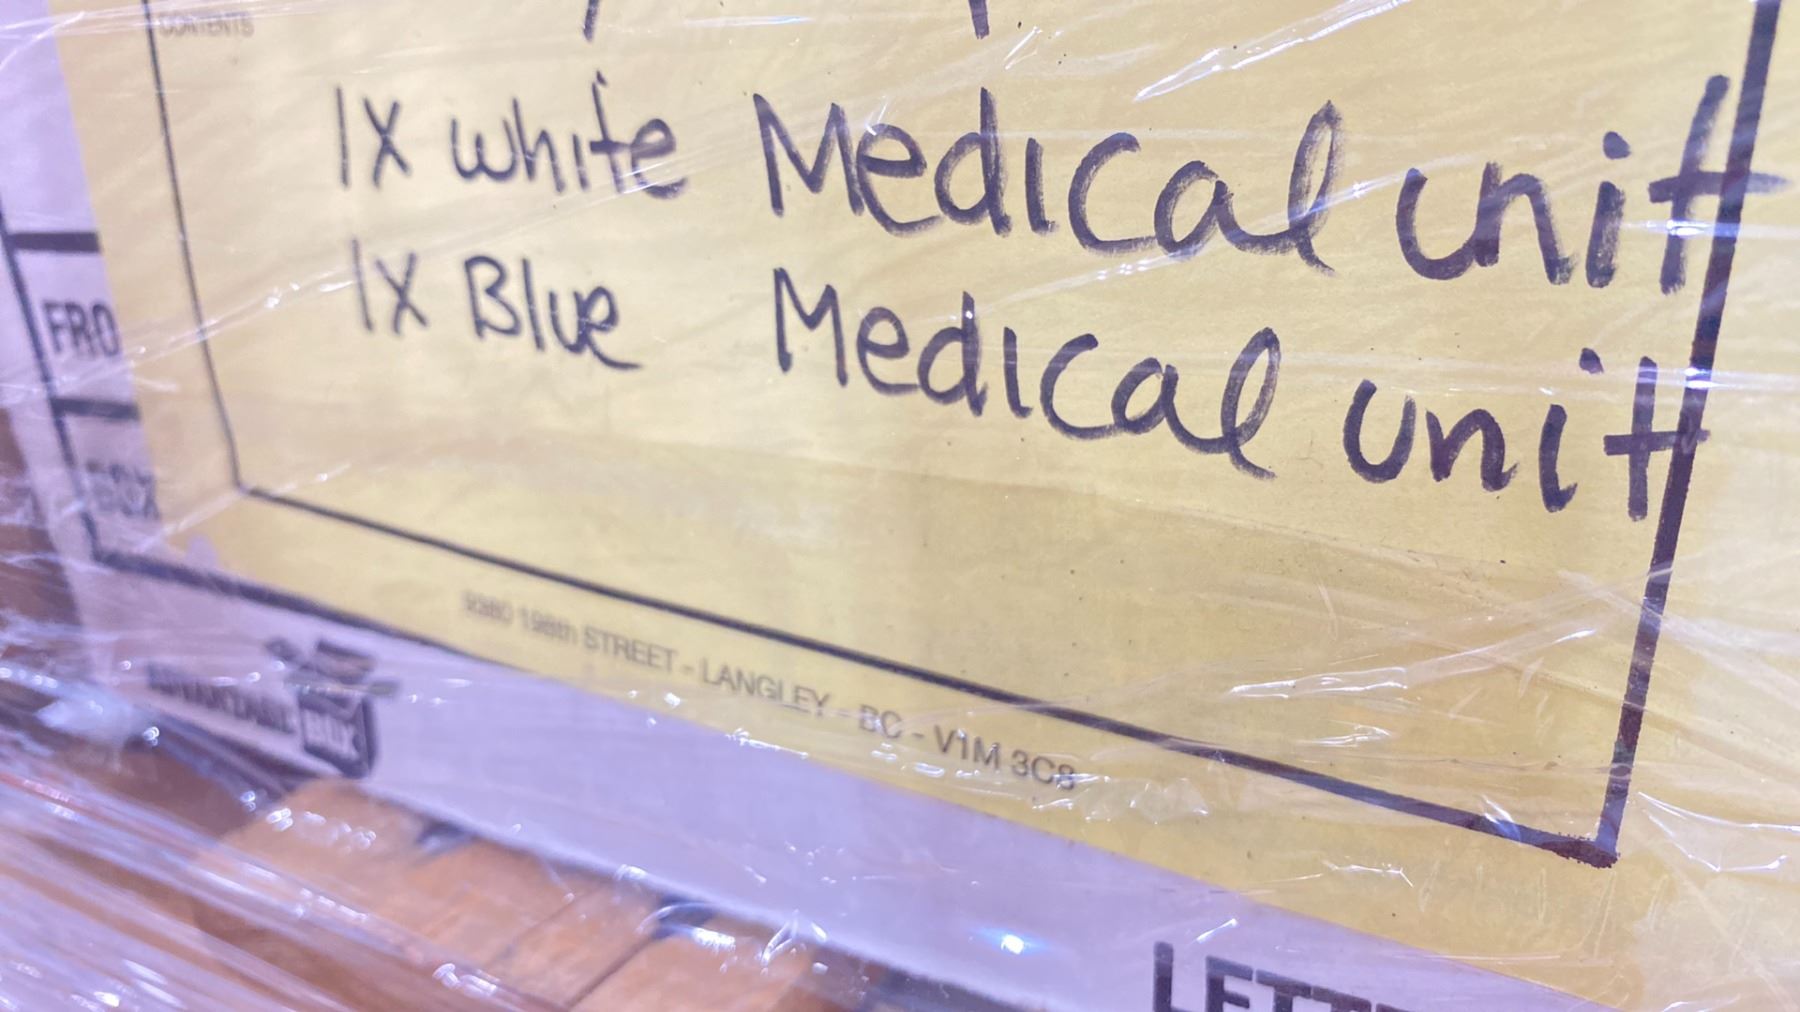 CONTENTS
1X white Medical unit
1X Blue Medical unit
FRO
BOX
9380 198th STREET - LANGLEY - BC - V1M 3C8
ADVANTAGE BOX
LETT